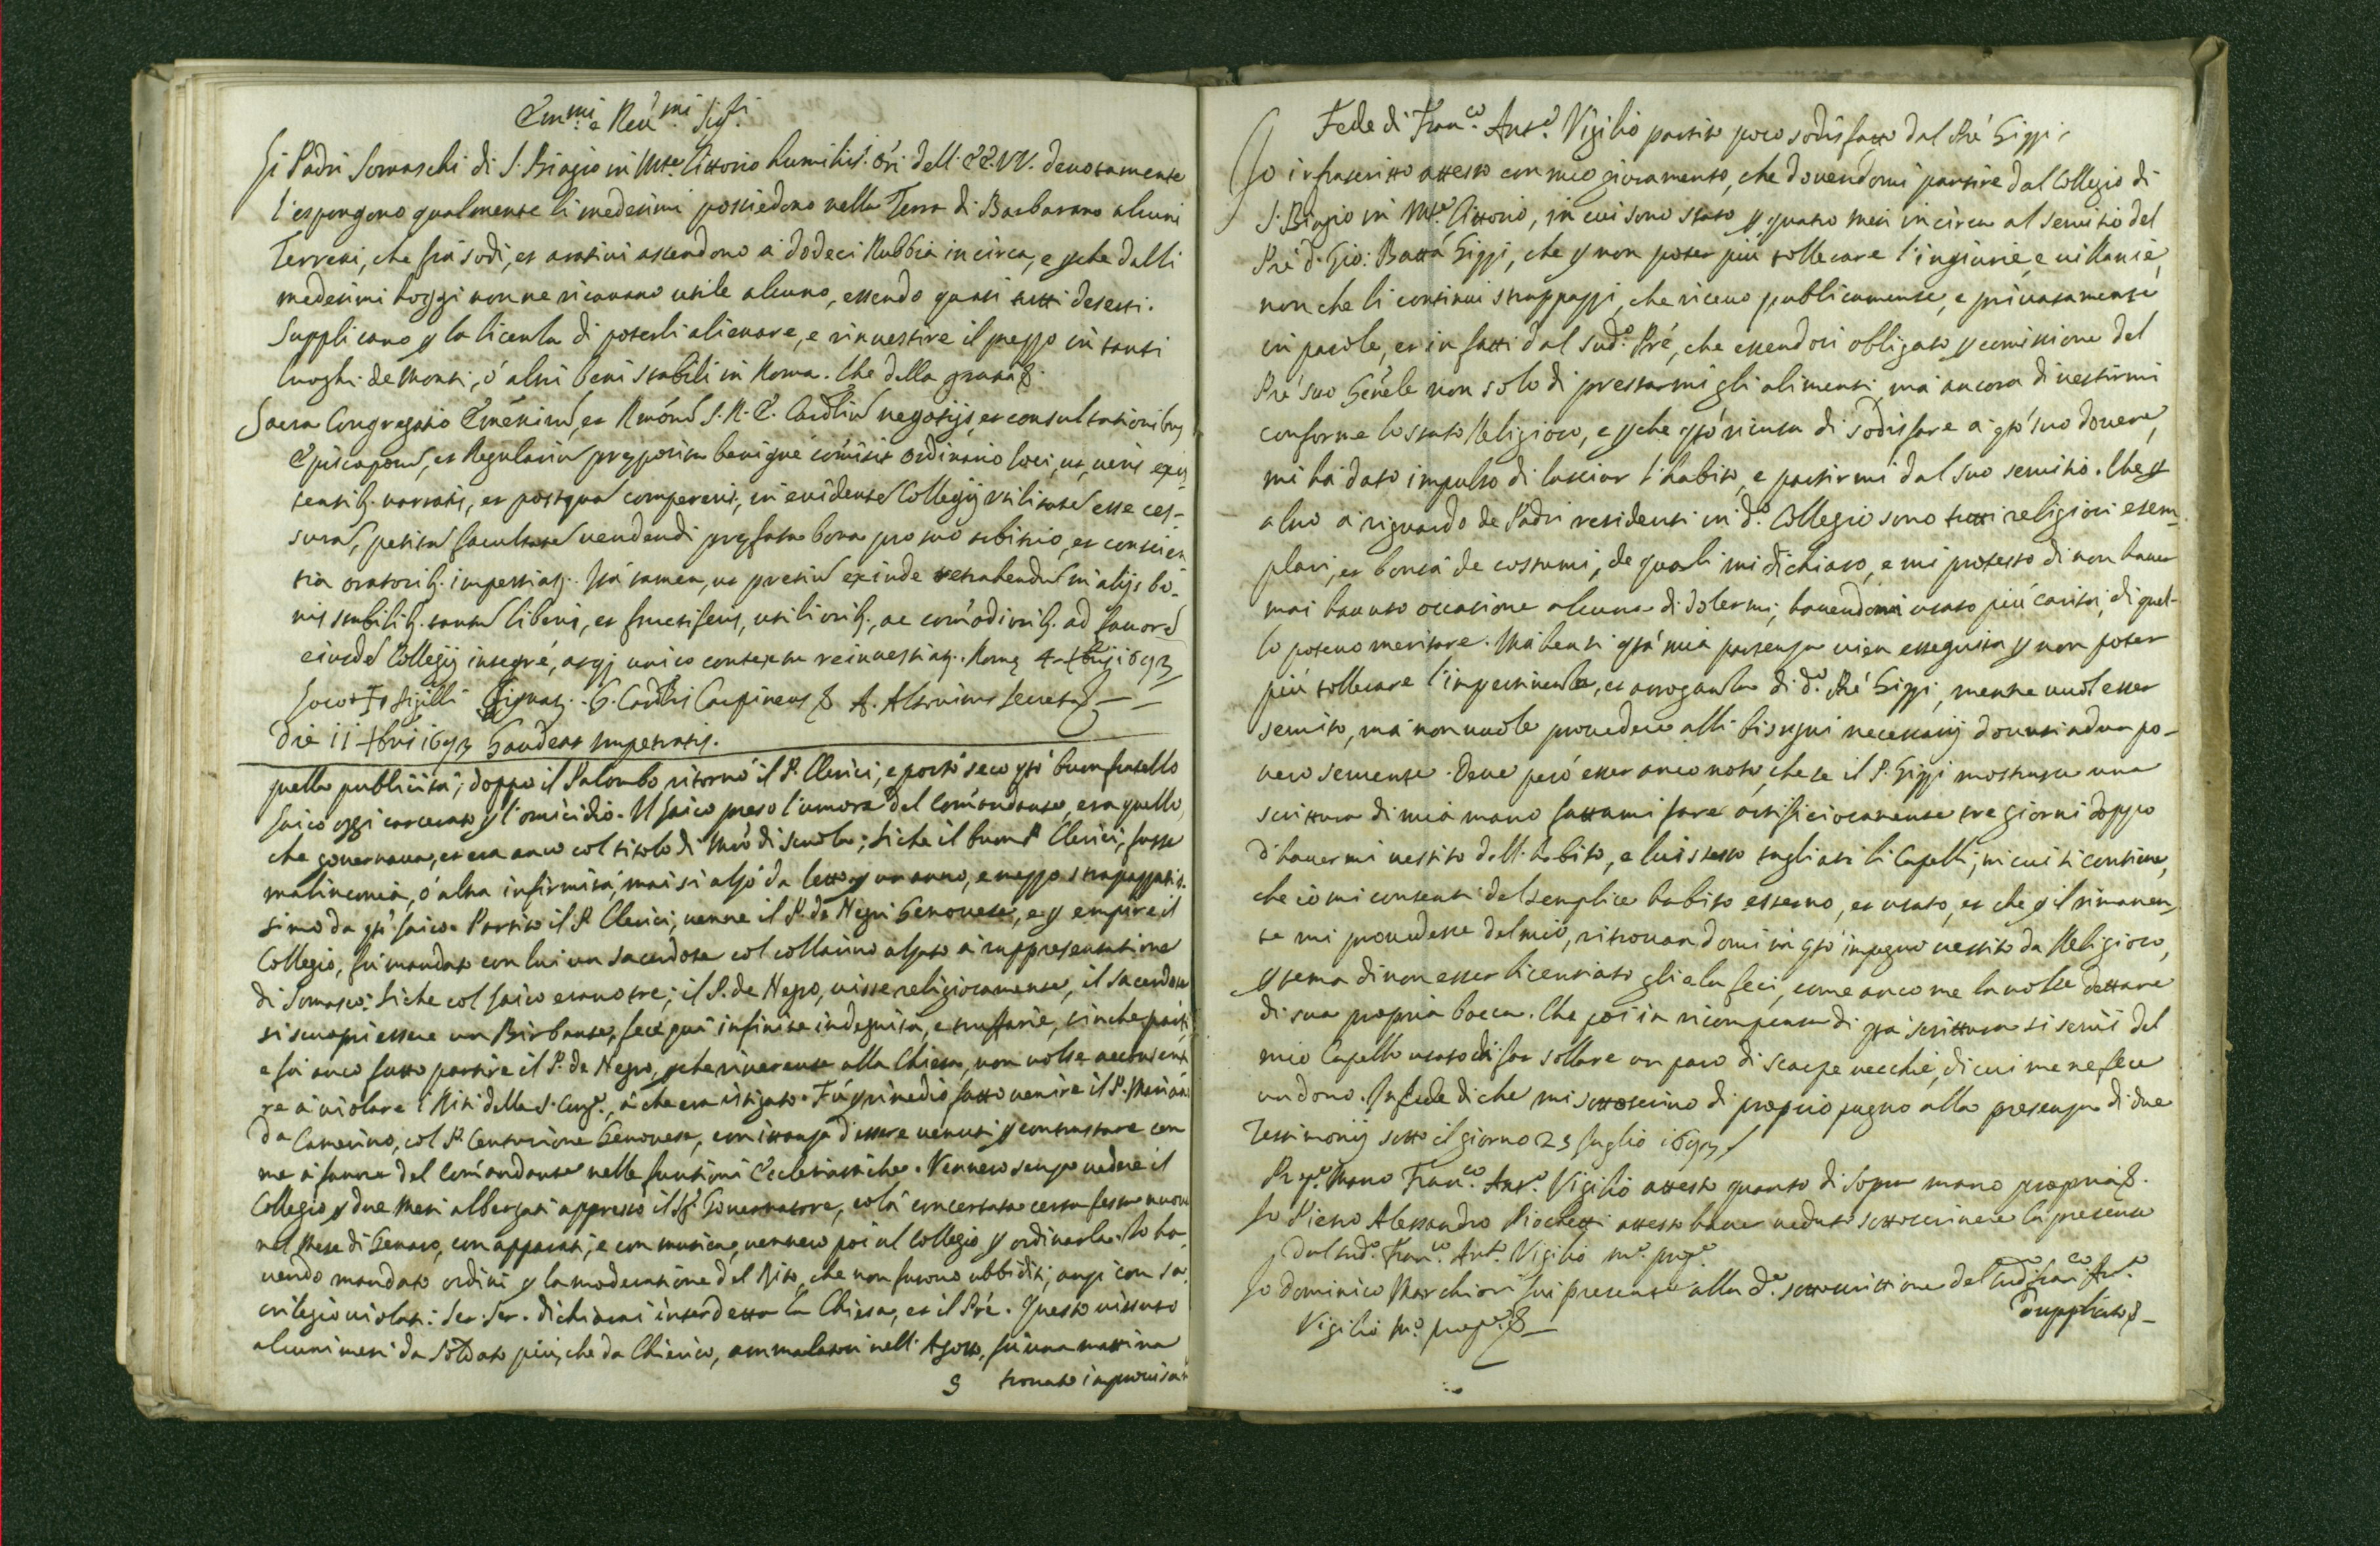 Em.mi e Reu.mi Sig.ri
Li Padri Somaschi di S. Biagio in M.te Cittorio humiliss. ori dell' EE.VV. deuotamente
l'espongono qualmente li medesimi possiedono nella Terra di Barbarano alcuni
Terreni, che frà sodi, et aratiui ascendono a dodeci Rubbia in circa, e perche dalli
medesimi hoggi non ne ricauano utile alcuno, essendo quasi tutti deserti.
Supplicano p la licenza di poterli alienare, e rinuestire il prezzo in tanti
luoghi de Monti, ò altri beni stabili in Roma. Che della gratia &.
Sacra Congregatio Eminen, et Rmor S. R. E. Cardliu negotijs, et consultationibus
Episcopor, et Regulariu preposita benignè comisit Ordinario loci, ut, ueris exis-
tentib. narratis, et postqua compererit, in euidente Collegij utilitate esse ces-
sura, petita facultate uendendi prefata bona pro suo arbitrio, et conscien
tia oratorib. impertiat. Ità tamen, ut pretiu exinde retrahendu in alijs bo-
nis stabilib. tantu liberis, et fructiferis, utiliorib., ac comodiorib. ad fauore
eiusde Collegij integrè, atq; unico contextu reinuestiat. Rome 4 Xbris 1693
Loco + Sigilli G. Card. Carpineus & A. Altouitus Secret.
Die 11 Xbris 1693 Gaudeat impetratis.
quella publicità; doppo il Palombo ritornò il P. Clerici, e portò seco qsto buon fratello
laico oggi carcerato p l'omicidio. Il laico preso l'umore del Comandante, era quello,
che gouernaua, et era anco col titolo di Mro di scuola; siche il buon P. Clerici, fusse
malinconia, ò altra infirmità, mai si alzò da letto p un anno, e mezzo strapazzatis-
simo da qsto laico. Partito il P. Clerici, uenne il P. de Negri Genouese, e p empire il
Collegio, fù mandato con lui un Sacerdote col collarino alzato a rappresentatione
di Somasco: siche col laico erano tre; il P. de Negro, uisse religiosamente, il Sacerdote
si scuoprì essere un Birbante, fece quì infinite indegnità, e truffarie, sinche partì,
e fù anco fatto partire il P. de Negro, perche riuerente alla Chiesa, non uolse acconsenti
re a uiolare i Riti della S. Cong.e, a che era istigato. Fù p rimedio fatto uenire il P. Meriàni
da Camerino, col P. Centurione Genouese, con istanza d'essere uenuti p contrastare con
me a fauore del Comandante nelle funtioni Ecclesiastiche. Vennero senza uedere il
Collegio p due mesi albergati appresso il Sr Gouernatore, colà concertata certa festa nuoua
nel Mese di Genaro, con apparati, e con musica, uennero poi al Collegio p ordinarla. Io ha-
uendo mandato ordini p la moderatione del Rito, che non furono ubbiditi, anzi con sa-
crilegio uiolati: Ser: Ser: dichiarai interdetta la Chiesa, et il Prè. Questo uissuto
alcuni mesi da Soldato più, che da Chierico, ammalatosi nell' Agosto, fù una mattina
9 trouato improuisa-
Fede di Fran.co Ant.o Vigilio partito poco sodisfatto dal Prè Gippi.
Io infrascritto attesto con mio giuramento, che douendomi partire dal Collegio di
S. Biagio in M.te Cittorio, in cui sono stato p quatro mesi in circa al seruitio del
Prè d. Gio: Batta Gippi, che p non poter più tollerare l'ingiurie, e uillanie,
non che li continui strappazzi, che riceuo publicamente, e priuatamente
in parole, et in fatti dal sud.o Prè, che essendosi obligato p comissione del
Prè suo Genèle non solo di prestarmi gli alimenti, mà ancora di uestirmi
conforme lo stato Religioso, e perche qsto ricusa di sodisfare a qsto suo douere,
mi hà dato impulso di lasciar l'habito, e partirmi dal suo seruitio. Che p
altro a riguardo de Padri residenti in d.o Collegio sono tutti religiosi esem-
plari, et bontà de costumi, de quali mi dichiaro, e mi protesto di non hauer
mai hauuto occasione alcuna di dolermi, hauendomi usato più carità, di quel-
lo poteuo meritare. Ma bensi qsta mia partenza uien esseguita p non poter
più tollerare l'impertinenza, et arroganza di d.o Prè Gippi, mentre uuol esser
seruito, mà non uuole prouedere alli bisogni necessarij douuti ad un po-
uero seruente. Deue però esser anco noto, che se il P. Gippi mostrasse una
scrittura di mia mano fattami fare artificiosamente tre giorni doppo
d'hauermi uestito dell' habito, e lui stesso tagliati li Capelli, in cui si contiene,
che io mi contenti del semplice habito esterno, et usato, et che p il rimanen-
te mi prouedesse del mio, ritrouandomi in qsto impegno uestito da Religioso,
p tema di non esser licentiato gliela feci, come anco me la uolse dettare
di sua propria bocca. Che poi in ricompensa di qsta scrittura si seruì del
mio Capello usato di far sollare un paro di scarpe uecchie, di cui me ne fece
un dono. In fede di che mi sottoscriuo di proprio pugno alla presenza di due
Testimonij sotto il giorno 23 luglio 1693
Io Fran.co Ant.o Vigilio attesto quanto di sopra mano propria &.
Io Pietro Alessandro Piochetti attesto hauer ueduto sottoscriuere la presente
dal sud.o Fran.co Ant.o Vigilio m.o prop.o
Io Dominico Marchiori fui presente alla d.a sottoscrittione del sud.o Fran.co Ant.o
Vigilio m.o prop.o &
Duplicato &